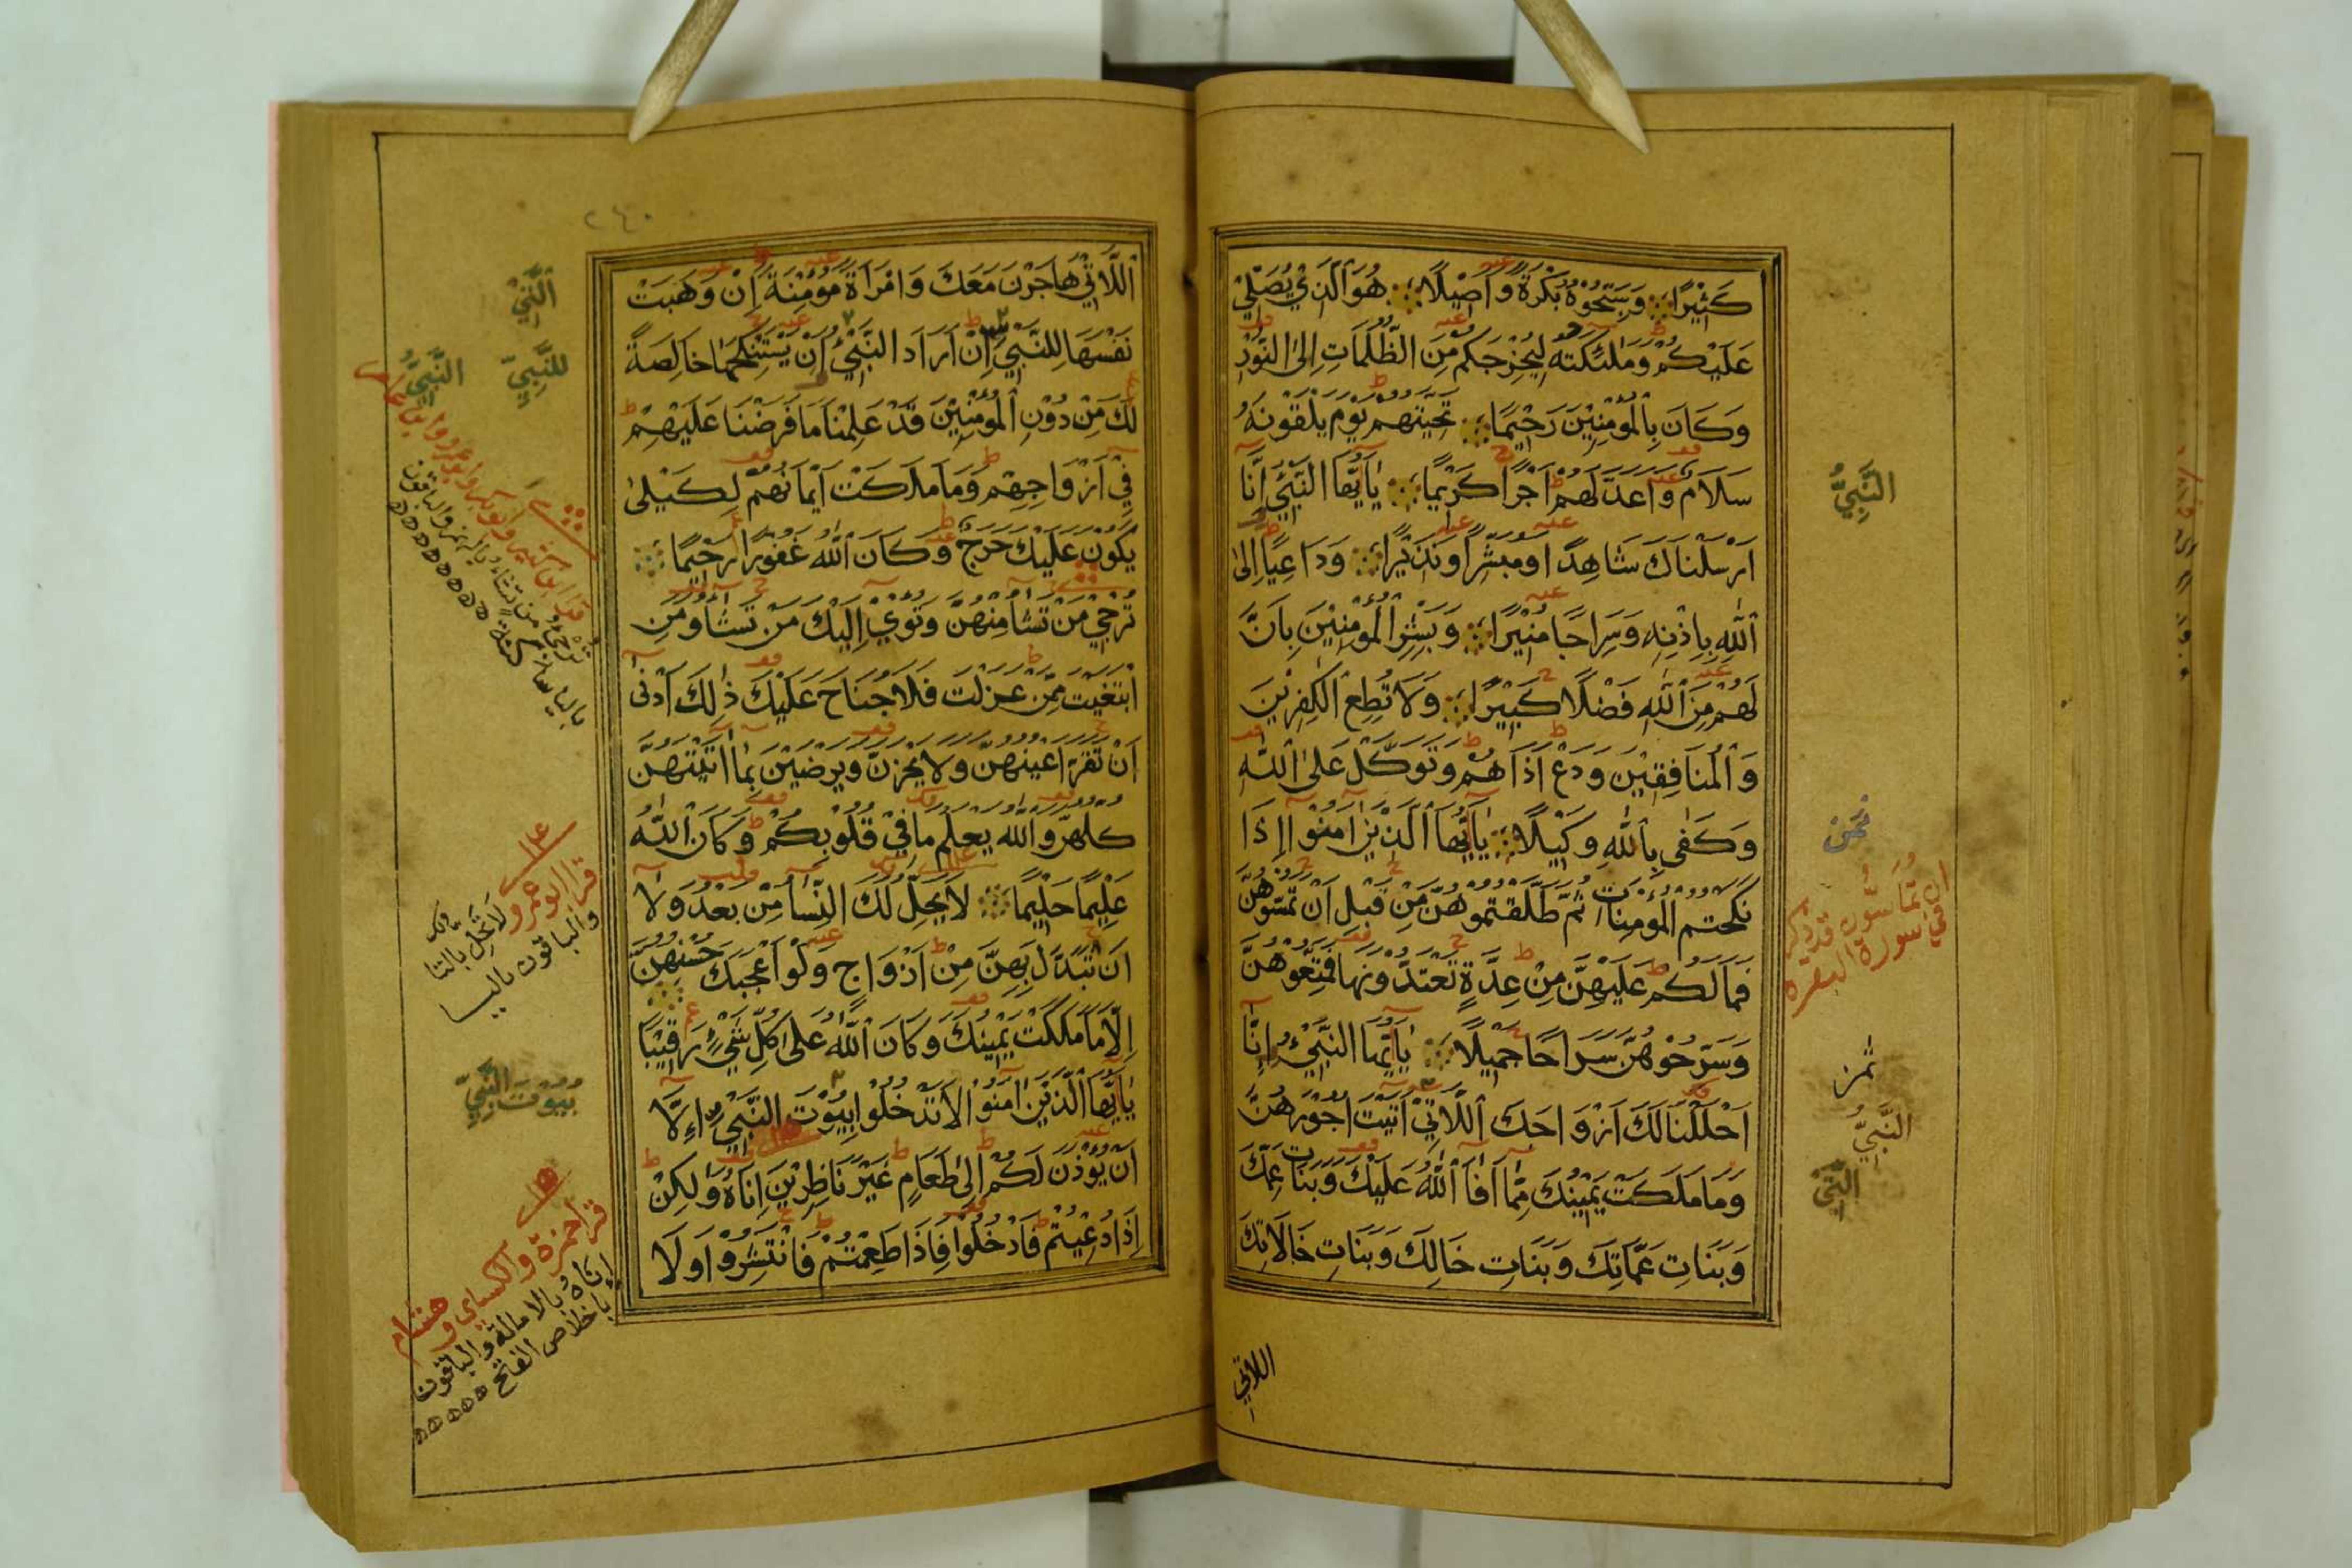 كَثِيْرًا وَسَبِّحُوْهُ بُكْرَةً وَاَصِيْلًا هُوَ الَّذِيْ يُصَلِّيْ
عَلَيْكُمْ وَمَلٰئِكَتُهٗ لِيُخْرِجَكُمْ مِنَ الظُّلُمَاتِ اِلَى النُّوْرِ
وَكَانَ بِالْمُؤْمِنِيْنَ رَحِيْمًا تَحِيَّتُهُمْ يَوْمَ يَلْقَوْنَهٗ
سَلَامٌ وَاَعَدَّ لَهُمْ اَجْرًا كَرِيْمًا يٰاَيُّهَا النَّبِيُّ اِنَّا
اَرْسَلْنَاكَ شَاهِدًا وَمُبَشِّرًا وَنَذِيْرًا وَدَاعِيًا اِلَى
اللّٰهِ بِاِذْنِهٖ وَسِرَاجًا مُنِيْرًا وَبَشِّرِ الْمُؤْمِنِيْنَ بِاَنَّ
لَهُمْ مِنَ اللّٰهِ فَضْلًا كَبِيْرًا وَلَا تُطِعِ الْكٰفِرِيْنَ
وَالْمُنَافِقِيْنَ وَدَعْ اَذَاهُمْ وَتَوَكَّلْ عَلَى اللّٰهِ
وَكَفٰى بِاللّٰهِ وَكِيْلًا يٰاَيُّهَا الَّذِيْنَ اٰمَنُوْا اِذَا
نَكَحْتُمُ الْمُؤْمِنَاتِ ثُمَّ طَلَّقْتُمُوْهُنَّ مِنْ قَبْلِ اَنْ تَمَسُّوْهُنَّ
فَمَا لَكُمْ عَلَيْهِنَّ مِنْ عِدَّةٍ تَعْتَدُّوْنَهَا فَمَتِّعُوْهُنَّ
وَسَرِّحُوْهُنَّ سَرَاحًا جَمِيْلًا يٰاَيُّهَا النَّبِيُّ اِنَّا
اَحْلَلْنَا لَكَ اَزْوَاجَكَ اللَّاتِيْ اٰتَيْتَ اُجُوْرَهُنَّ
وَمَا مَلَكَتْ يَمِيْنُكَ مِمَّا اَفَاءَ اللّٰهُ عَلَيْكَ وَبَنَاتِ عَمِّكَ
وَبَنَاتِ عَمَّاتِكَ وَبَنَاتِ خَالِكَ وَبَنَاتِ خَالَاتِكَ
اللاتي
النَّبِيُّ
نحن
ان تُمَاسُّوهن قد ذكر
في سورة البقرة
النَّبِيُّ
٢٤٠
اللَّاتِيْ هَاجَرْنَ مَعَكَ وَامْرَاَةً مُؤْمِنَةً اِنْ وَهَبَتْ
نَفْسَهَا لِلنَّبِيِّ اِنْ اَرَادَ النَّبِيُّ اَنْ يَسْتَنْكِحَهَا خَالِصَةً
لَكَ مِنْ دُوْنِ الْمُؤْمِنِيْنَ قَدْ عَلِمْنَا مَا فَرَضْنَا عَلَيْهِمْ
فِيْ اَزْوَاجِهِمْ وَمَا مَلَكَتْ اَيْمَانُهُمْ لِكَيْلَا
يَكُوْنَ عَلَيْكَ حَرَجٌ وَكَانَ اللّٰهُ غَفُوْرًا رَحِيْمًا
تُرْجِيْ مَنْ تَشَاءُ مِنْهُنَّ وَتُؤْوِيْ اِلَيْكَ مَنْ تَشَاءُ وَمَنِ
ابْتَغَيْتَ مِمَّنْ عَزَلْتَ فَلَا جُنَاحَ عَلَيْكَ ذٰلِكَ اَدْنٰى
اَنْ تَقَرَّ اَعْيُنُهُنَّ وَلَا يَحْزَنَّ وَيَرْضَيْنَ بِمَا اٰتَيْتَهُنَّ
كُلُّهُنَّ وَاللّٰهُ يَعْلَمُ مَا فِيْ قُلُوْبِكُمْ وَكَانَ اللّٰهُ
عَلِيْمًا حَلِيْمًا لَا يَحِلُّ لَكَ النِّسَاءُ مِنْ بَعْدُ وَلَا
اَنْ تَبَدَّلَ بِهِنَّ مِنْ اَزْوَاجٍ وَلَوْ اَعْجَبَكَ حُسْنُهُنَّ
اِلَّا مَا مَلَكَتْ يَمِيْنُكَ وَكَانَ اللّٰهُ عَلٰى كُلِّ شَيْءٍ رَقِيْبًا
يٰاَيُّهَا الَّذِيْنَ اٰمَنُوْا لَا تَدْخُلُوْا بُيُوْتَ النَّبِيِّ اِلَّا
اَنْ يُؤْذَنَ لَكُمْ اِلٰى طَعَامٍ غَيْرَ نَاظِرِيْنَ اِنَاهُ وَلٰكِنْ
اِذَا دُعِيْتُمْ فَادْخُلُوْا فَاِذَا طَعِمْتُمْ فَانْتَشِرُوْا وَلَا
للنَّبِيّ
النَّبِيُّ
قرا ابو عمرو لَا تَحِلُّ بالتا
والباقون باليا
بُيُوْتَ النَّبِيّ
قرا حمزة والكسايي وهشام
اِنَاهُ بالامالة والباقون
باخلاص الفتح